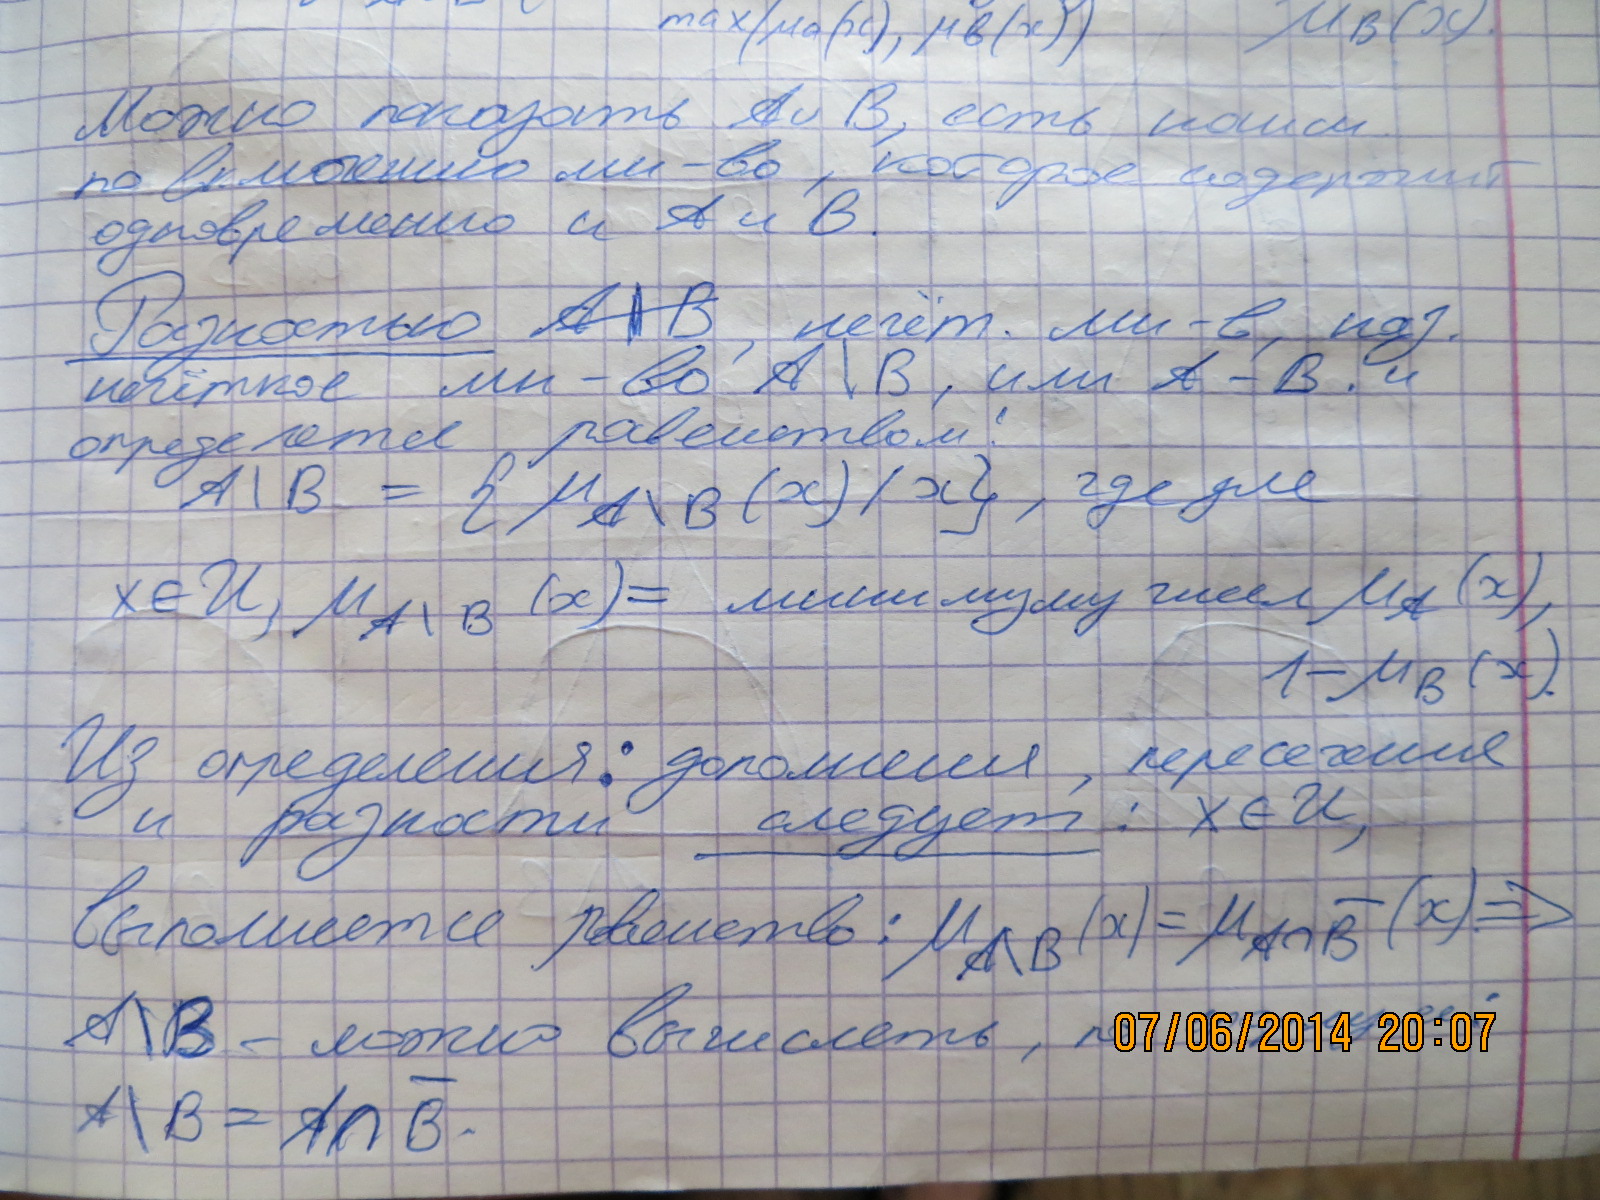 max(μa(x), μв(x)) μB(x).
Можно показать A и B, есть наим.
по включению мн-во, которое содержит
одновременно и A и B.
Разностью A\B, нечёт. мн-в, наз.
нечёткое мн-во A\B, или A-B. и
определяется равенством:
A\B = {μA\B(x)/x}, где для
x∈U, μA\B(x)= минимуму чисел μA(x),
1-μB(x).
Из определения: дополнения, пересечения
и разности следует: x∈U,
выполняется равенство: μA\B(x)=μA∩B̅(x).⇒
A\B - можно вычислеть, по
07/06/2014 20:07
A\B = A∩B̅.